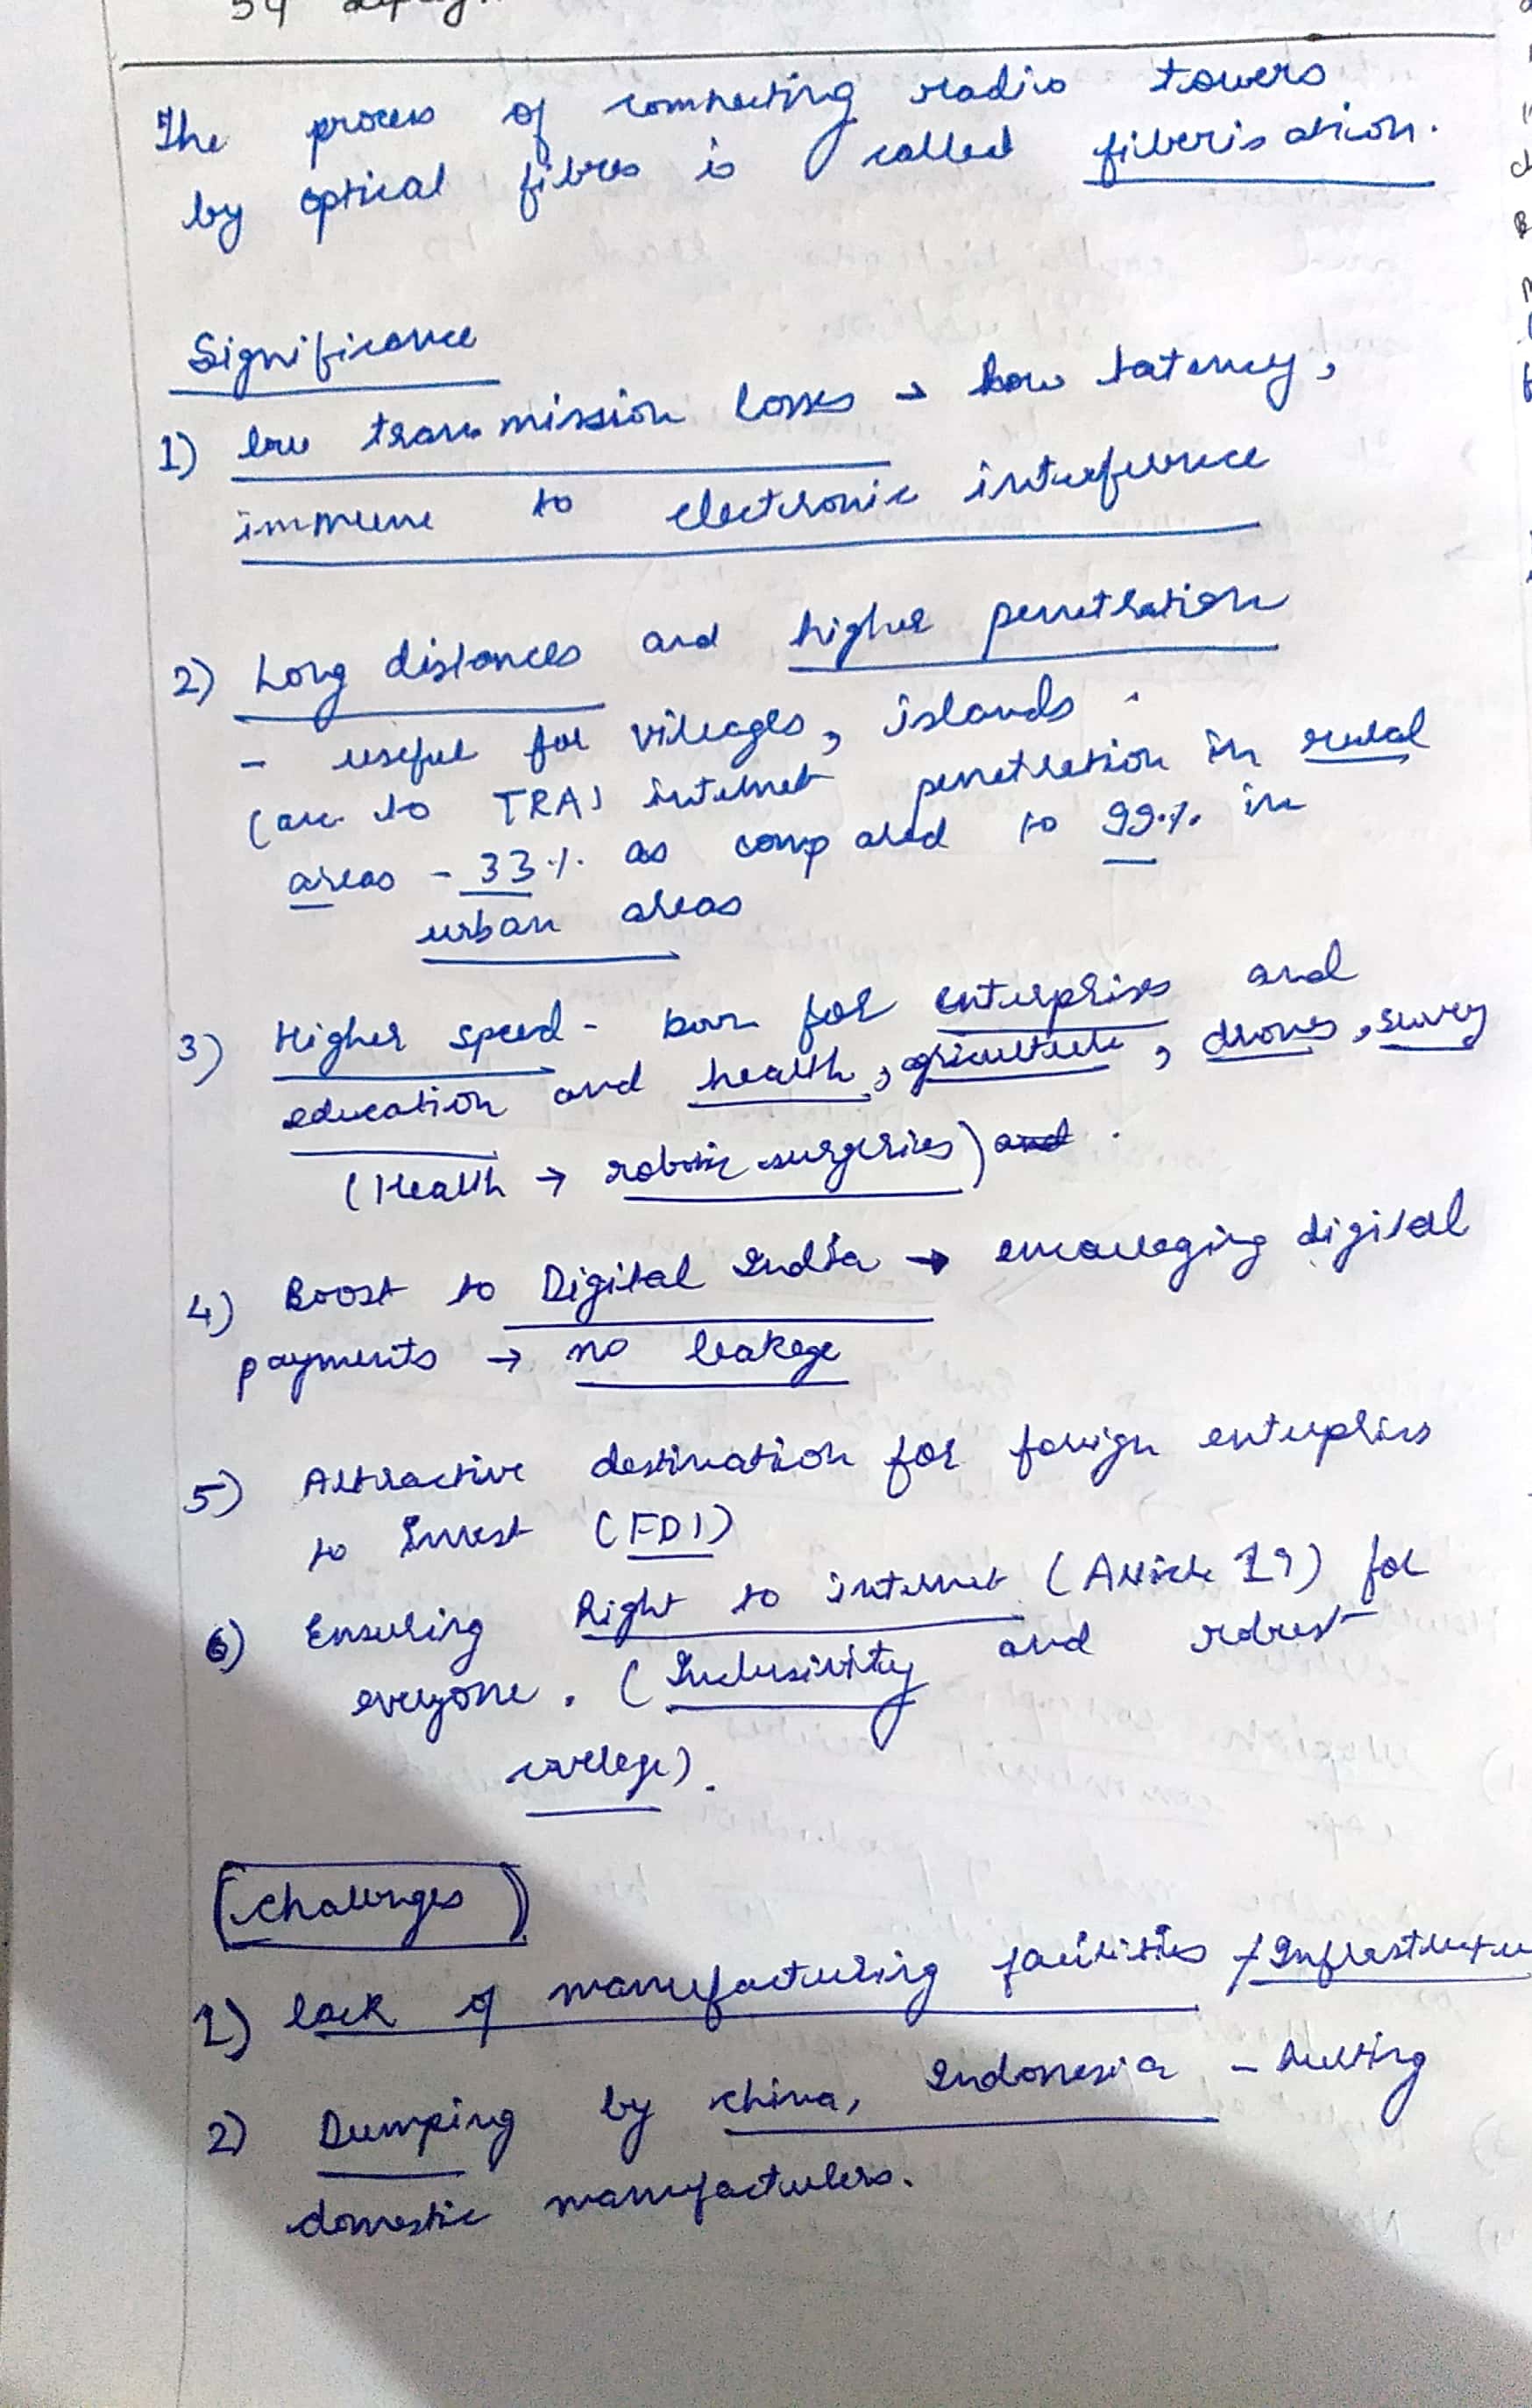 The process of connecting radio towers
by optical fibres is called fiberisation.
Significance
1) low transmission losses → low latency,
immune to electronic interference
2) Long distances and higher penetration
- useful for villages, islands
(acc. to TRAI internet penetration in rural
areas - 33% as compared to 99% in
urban areas
3) Higher speed - boon for enterprises and
education and health, agriculture, drones, survey
(Health → robotic surgeries) and
4) Boost to Digital India → encouraging digital
payments → no leakage
5) Attractive destination for foreign enterprises
to Invest (FDI)
6) Ensuring Right to internet (Article 19) for
everyone. (Inclusivity and robust
coverage).
Challenges
1) lack of manufacturing facilities / Infrastructure
2) Dumping by China, Indonesia - hurting
domestic manufacturers.